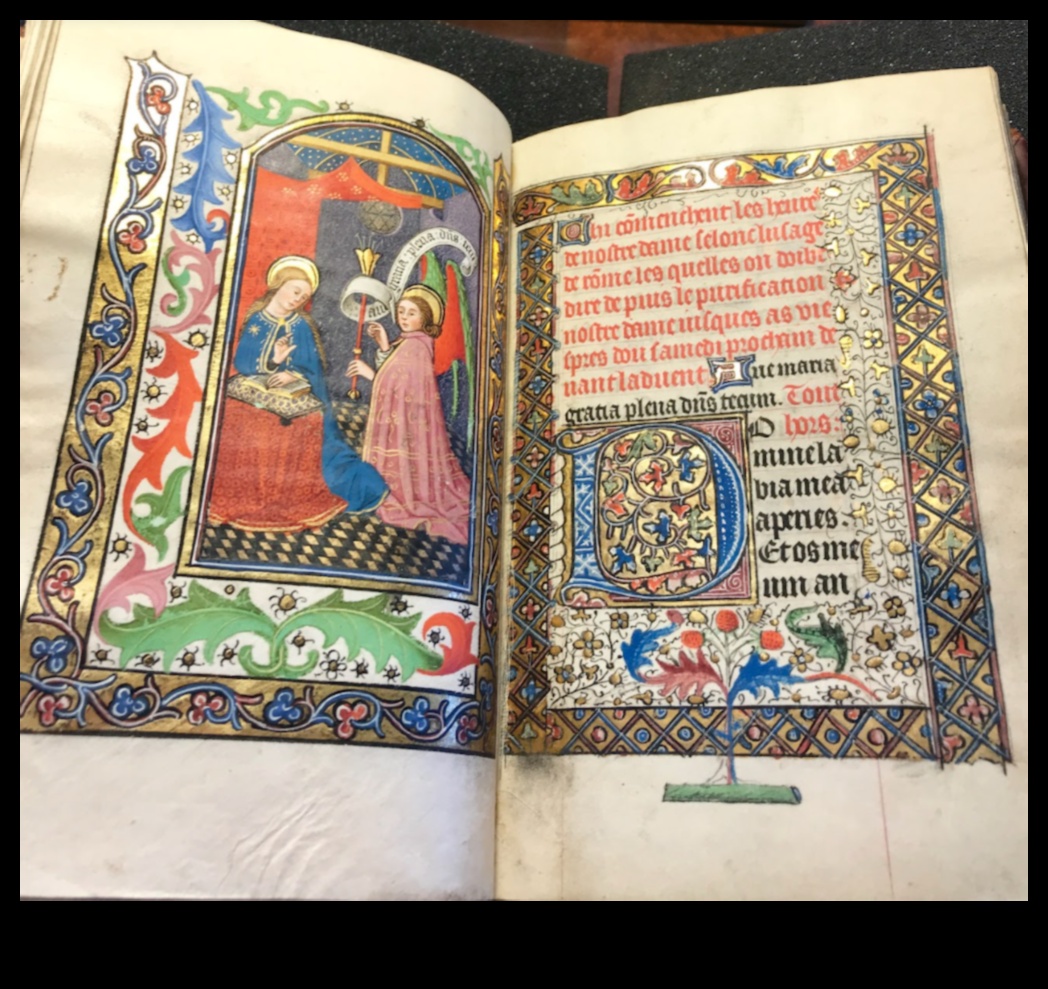 plena dns
Chi cōmenchent les heure
de nostre dame selonc lusage
de rōme les quelles on doibt
dire de puis le purification
nostre dame iusques as ve
spres dou samedi prochain de
uant laduent. Aue maria
gratia plena dn̄s tecum. Tout
DO hors:
mine la
bia mea
aperies.
Et os me
um an